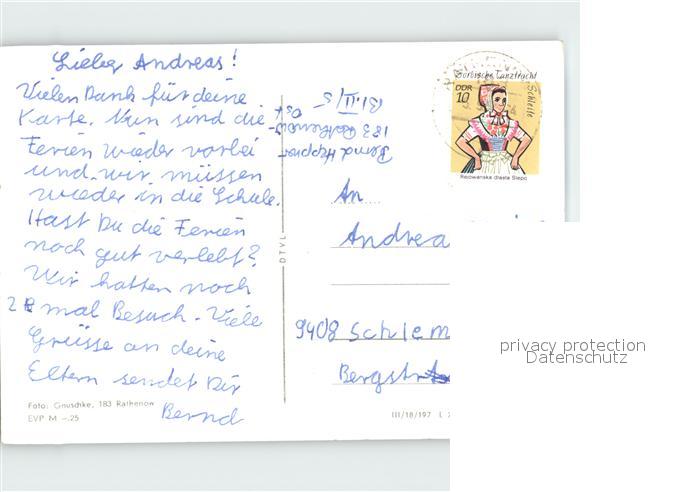 Lieber Andreas!
Vielen Dank für deine
Karte. Nun sind die
Ferien wieder vorbei
und wir müssen
wieder in die Schule.
Hast Du die Ferien
noch gut verlebt?
Wir hatten noch
2 mal Besuch. Viele
Grüsse an deine
Eltern sendet Dir
Bernd
Foto: Gnuschke, 183 Rathenow
EVP M –.25
DTVL
Bernd
183 Rathenow-
Ost
B.1.II/5
Sorbische Tanztracht
DDR
10
Schleife
Rejowanska drasta Slepo
An
Andrea
9408 Schlem
Bergstr
III/18/197 L
privacy protection
Datenschutz